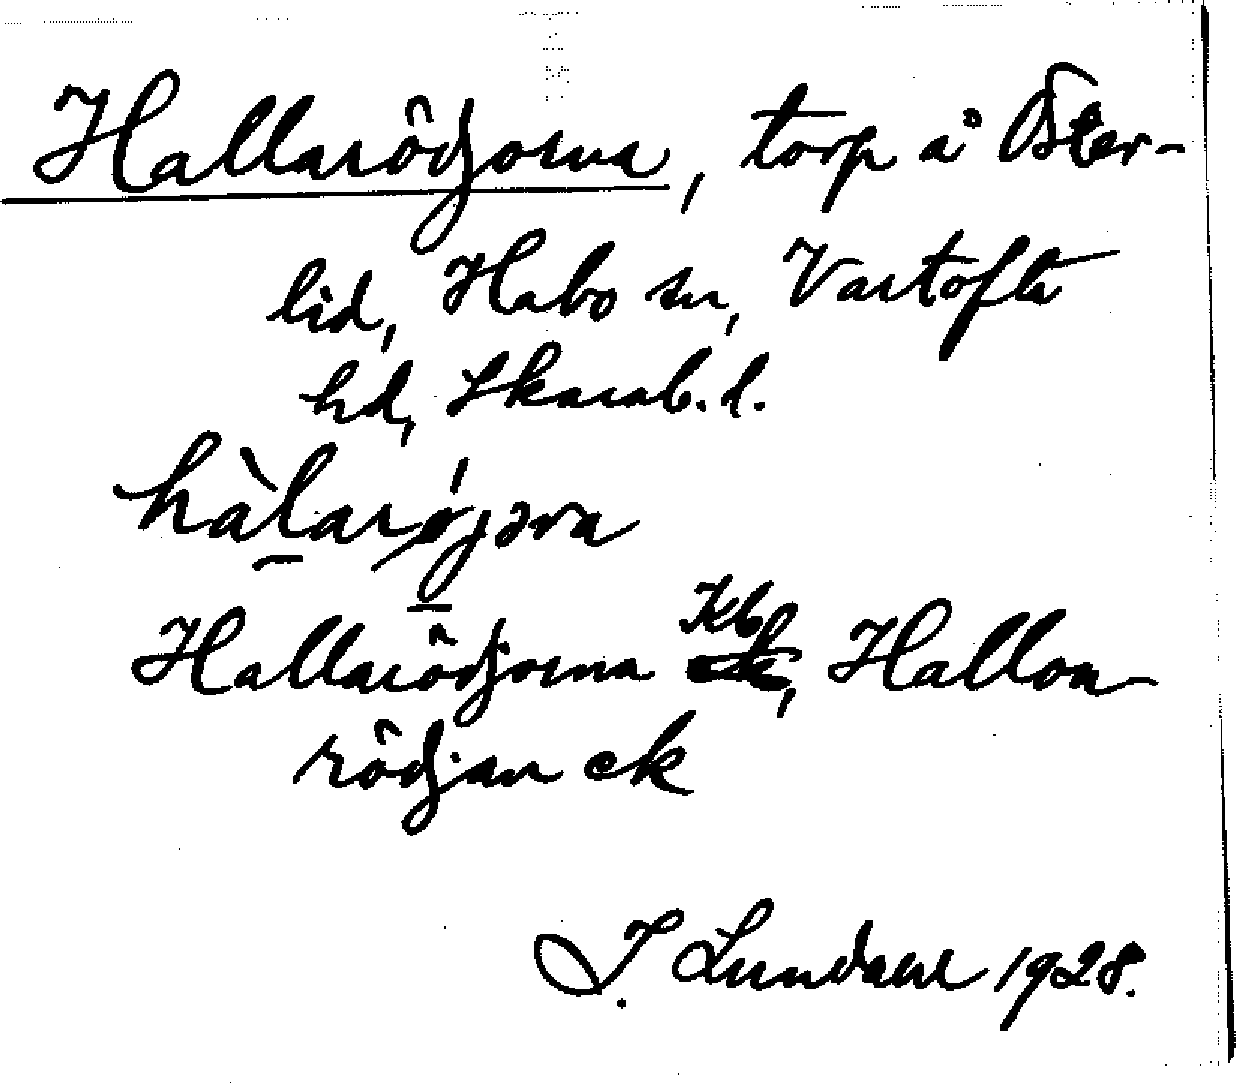 Hallarödjorna, torp å Öster-
lid, Habo sn, Vartofta
hd, Skarab. l.
hàlarøjəra
Hallarödjorna Kb, Hallon-
rödjan ek
I. Lundahl 1928.